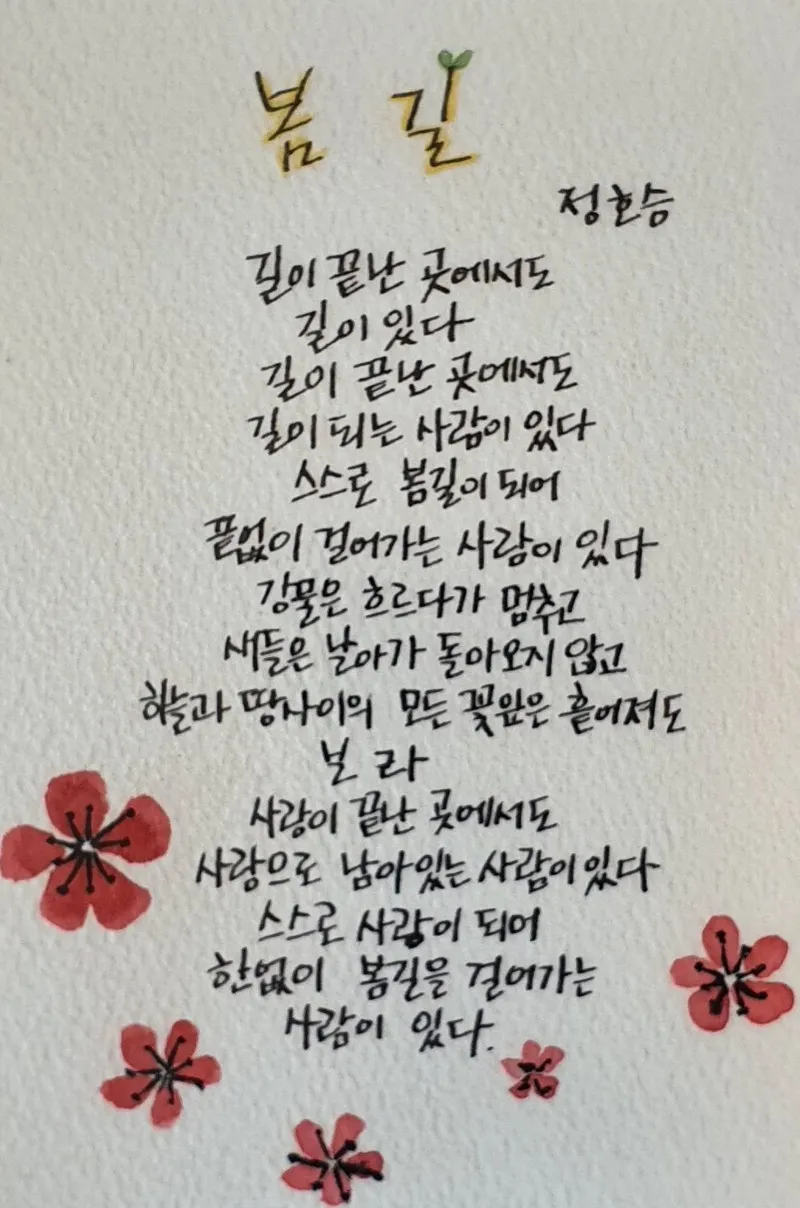 봄 길
정호승
길이 끝난 곳에서도
길이 있다
길이 끝난 곳에서도
길이 되는 사람이 있다
스스로 봄길이 되어
끝없이 걸어가는 사람이 있다
강물은 흐르다가 멈추고
새들은 날아가 돌아오지 않고
하늘과 땅사이의 모든 꽃잎은 흩어져도
보 라
사랑이 끝난 곳에서도
사랑으로 남아있는 사람이있다
스스로 사랑이 되어
한없이 봄길을 걸어가는
사람이 있다.